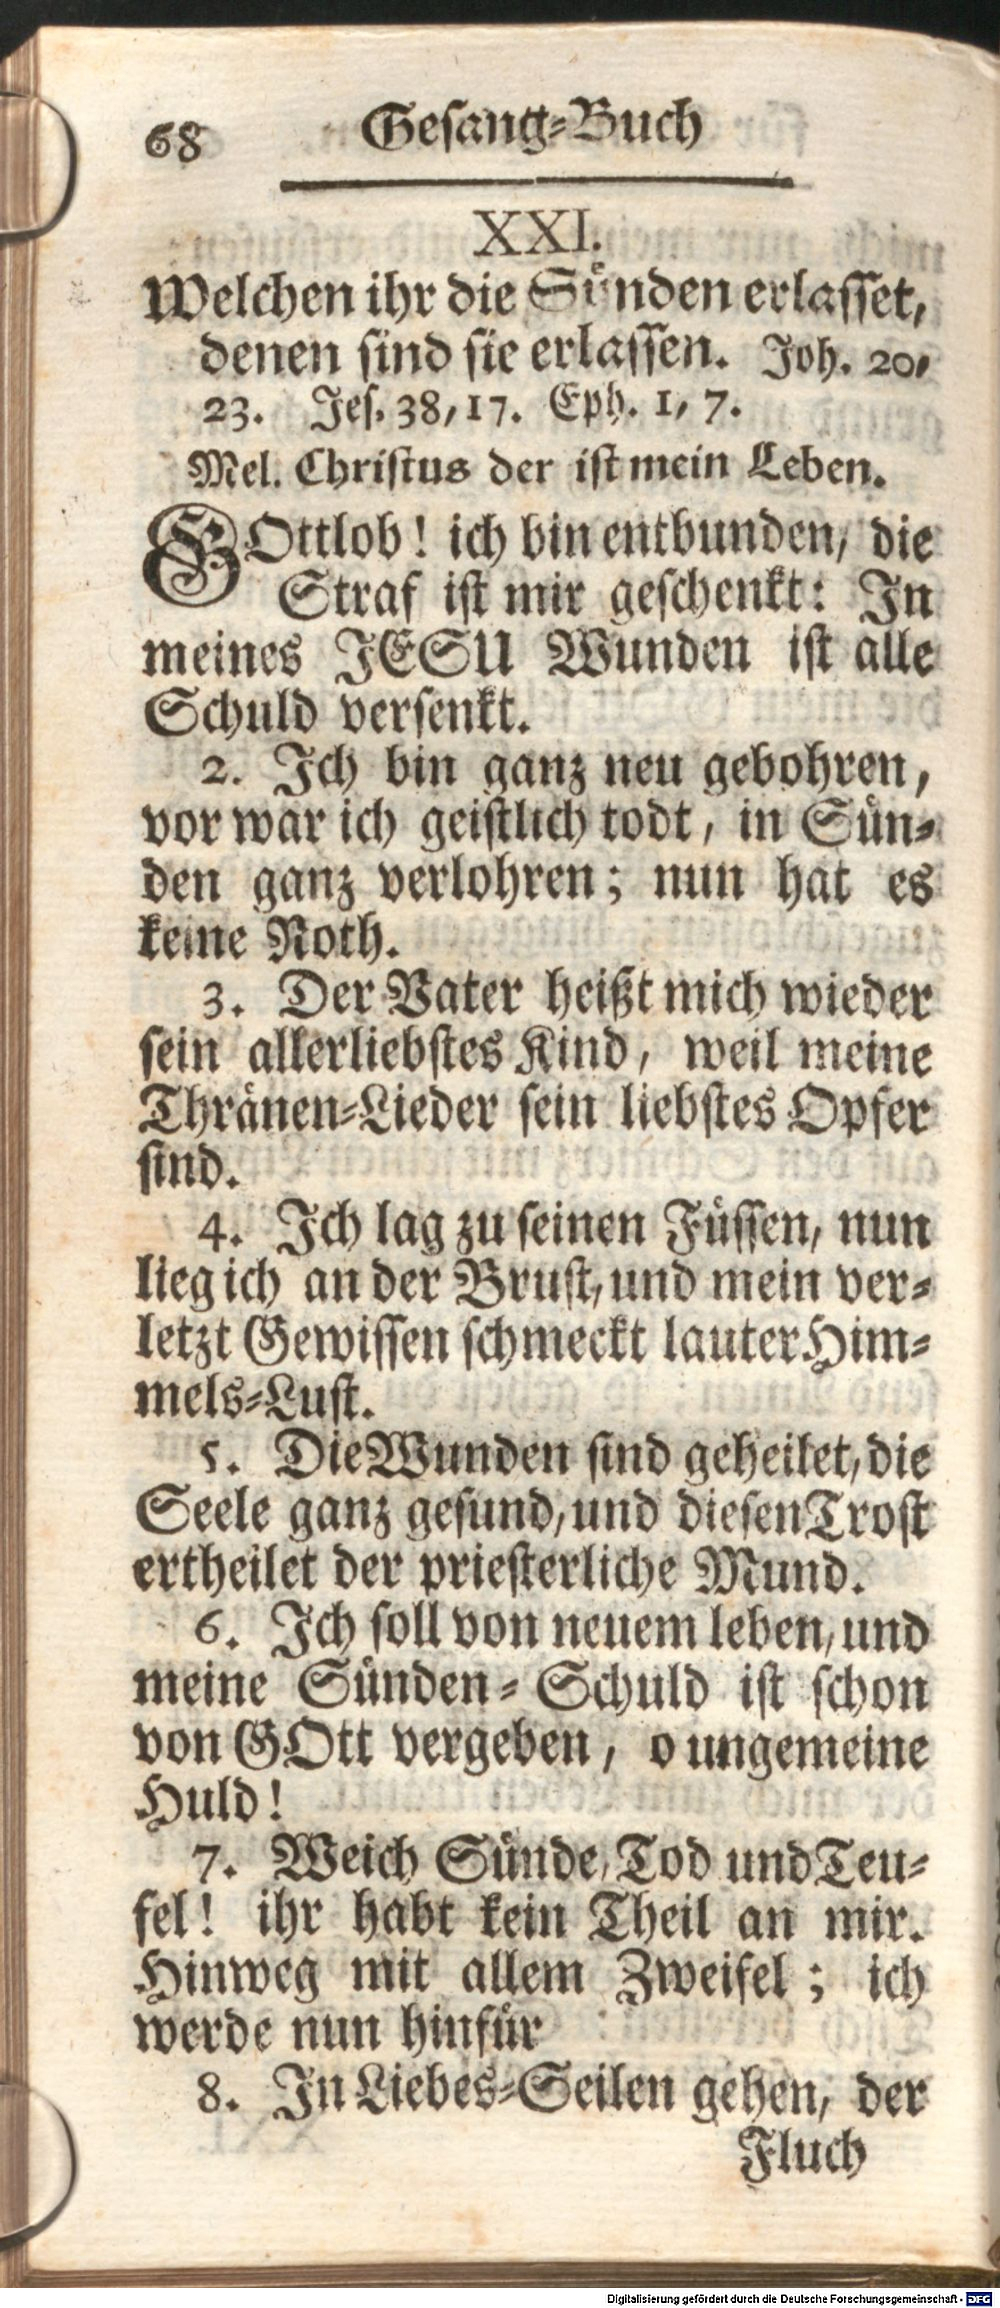 68 Gesang-Buch
XXI.
Welchen ihr die Sünden erlasset,
denen sind sie erlassen. Joh. 20,
23. Jes. 38, 17. Eph. 1, 7.
Mel. Christus der ist mein Leben.
GOttlob! ich bin entbunden, die
Straf ist mir geschenkt: In
meines JESU Wunden ist alle
Schuld versenkt.
2. Ich bin ganz neu gebohren,
vor war ich geistlich todt, in Sün-
den ganz verlohren; nun hat es
keine Noth.
3. Der Vater heißt mich wieder
sein allerliebstes Kind, weil meine
Thränen-Lieder sein liebstes Opfer
sind.
4. Ich lag zu seinen Füssen, nun
lieg ich an der Brust, und mein ver-
letzt Gewissen schmeckt lauter Him-
mels-Lust.
5. Die Wunden sind geheilet, die
Seele ganz gesund, und diesen Trost
ertheilet der priesterliche Mund.
6. Ich soll von neuem leben, und
meine Sünden-Schuld ist schon
von GOtt vergeben, o ungemeine
Huld!
7. Weich Sünde, Tod und Teu-
fel! ihr habt kein Theil an mir.
Hinweg mit allem Zweifel; ich
werde nun hinfür
8. In Liebes-Seilen gehen, der
Fluch
Digitalisierung gefördert durch die Deutsche Forschungsgemeinschaft - DFG